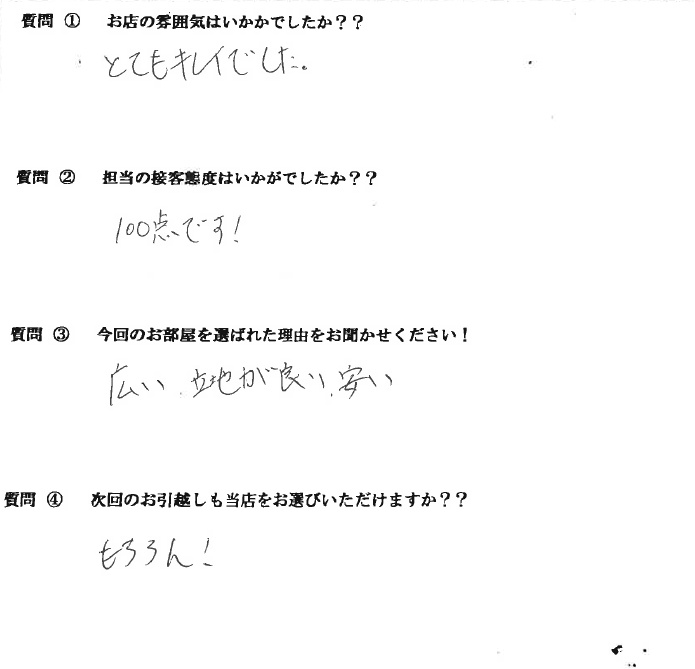 質問 ① お店の雰囲気はいかかでしたか？？
とてもキレイでした。
質問 ② 担当の接客態度はいかがでしたか？？
100点です！
質問 ③ 今回のお部屋を選ばれた理由をお聞かせください！
広い、立地が良い、安い
質問 ④ 次回のお引越しも当店をお選びいただけますか？？
もちろん！